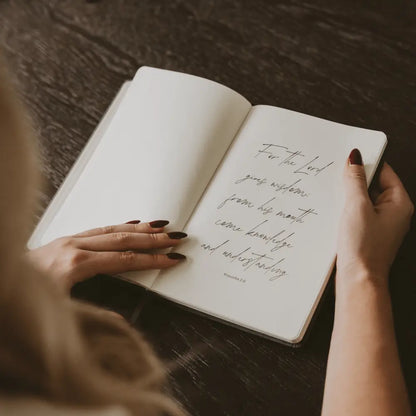 For the Lord
gives wisdom
from his mouth
come knowledge
and understanding
Proverbs 2:6